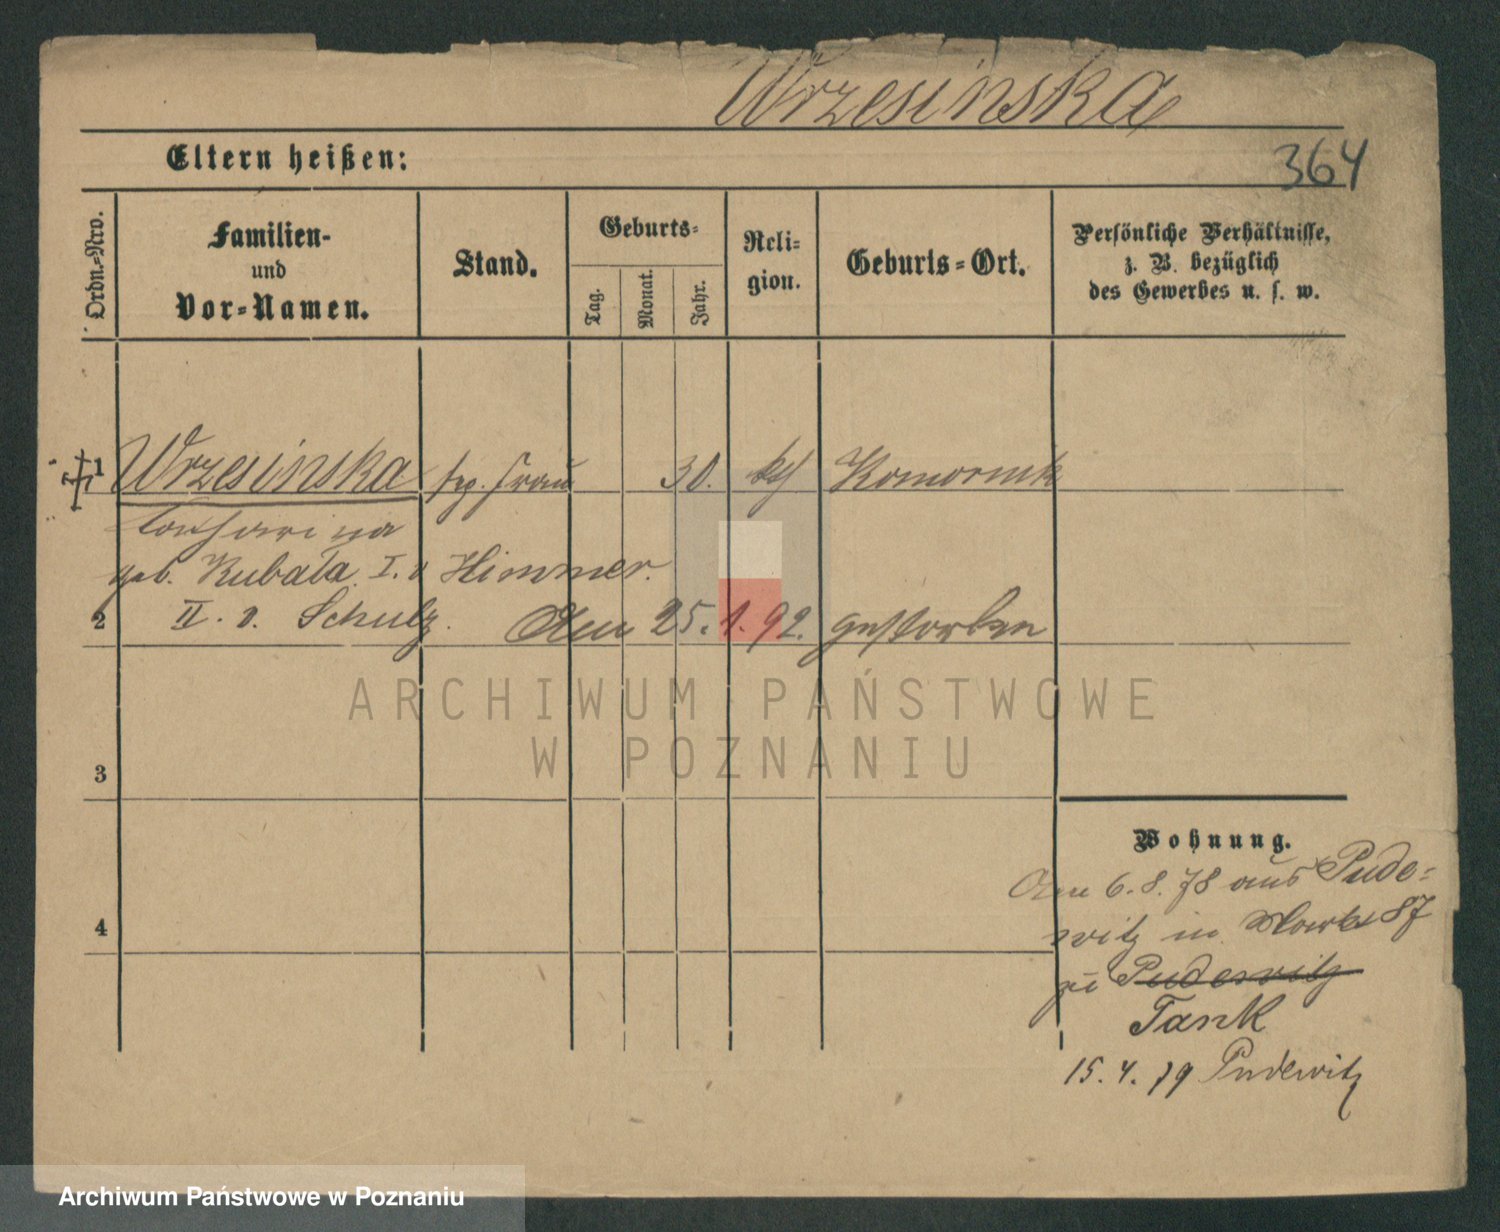 Wrzesinska
Eltern heißen:
364
Ordn.=Nro.
Familien-
und
Vor=Namen.
Stand.
Geburts=
Tag.
Monat.
Jahr.
Reli=
gion.
Geburts=Ort.
Persönliche Verhältnisse,
z. B. bezüglich
des Gewerbes u. s. w.
1 Wrzesinska Frau 30. kth Komornik
Katharina
geb. Kubala I. v Himmer.
2 II. v. Schulz. Am 25.1.92. gestorben
ARCHIWUM PAŃSTWOWE
W POZNANIU
3
Wohnung.
Am 6.8.78 aus Pude=
4
witz in Markt 87
zu Pudewitz
Tank
15.4.79 Pudewitz
Archiwum Państwowe w Poznaniu